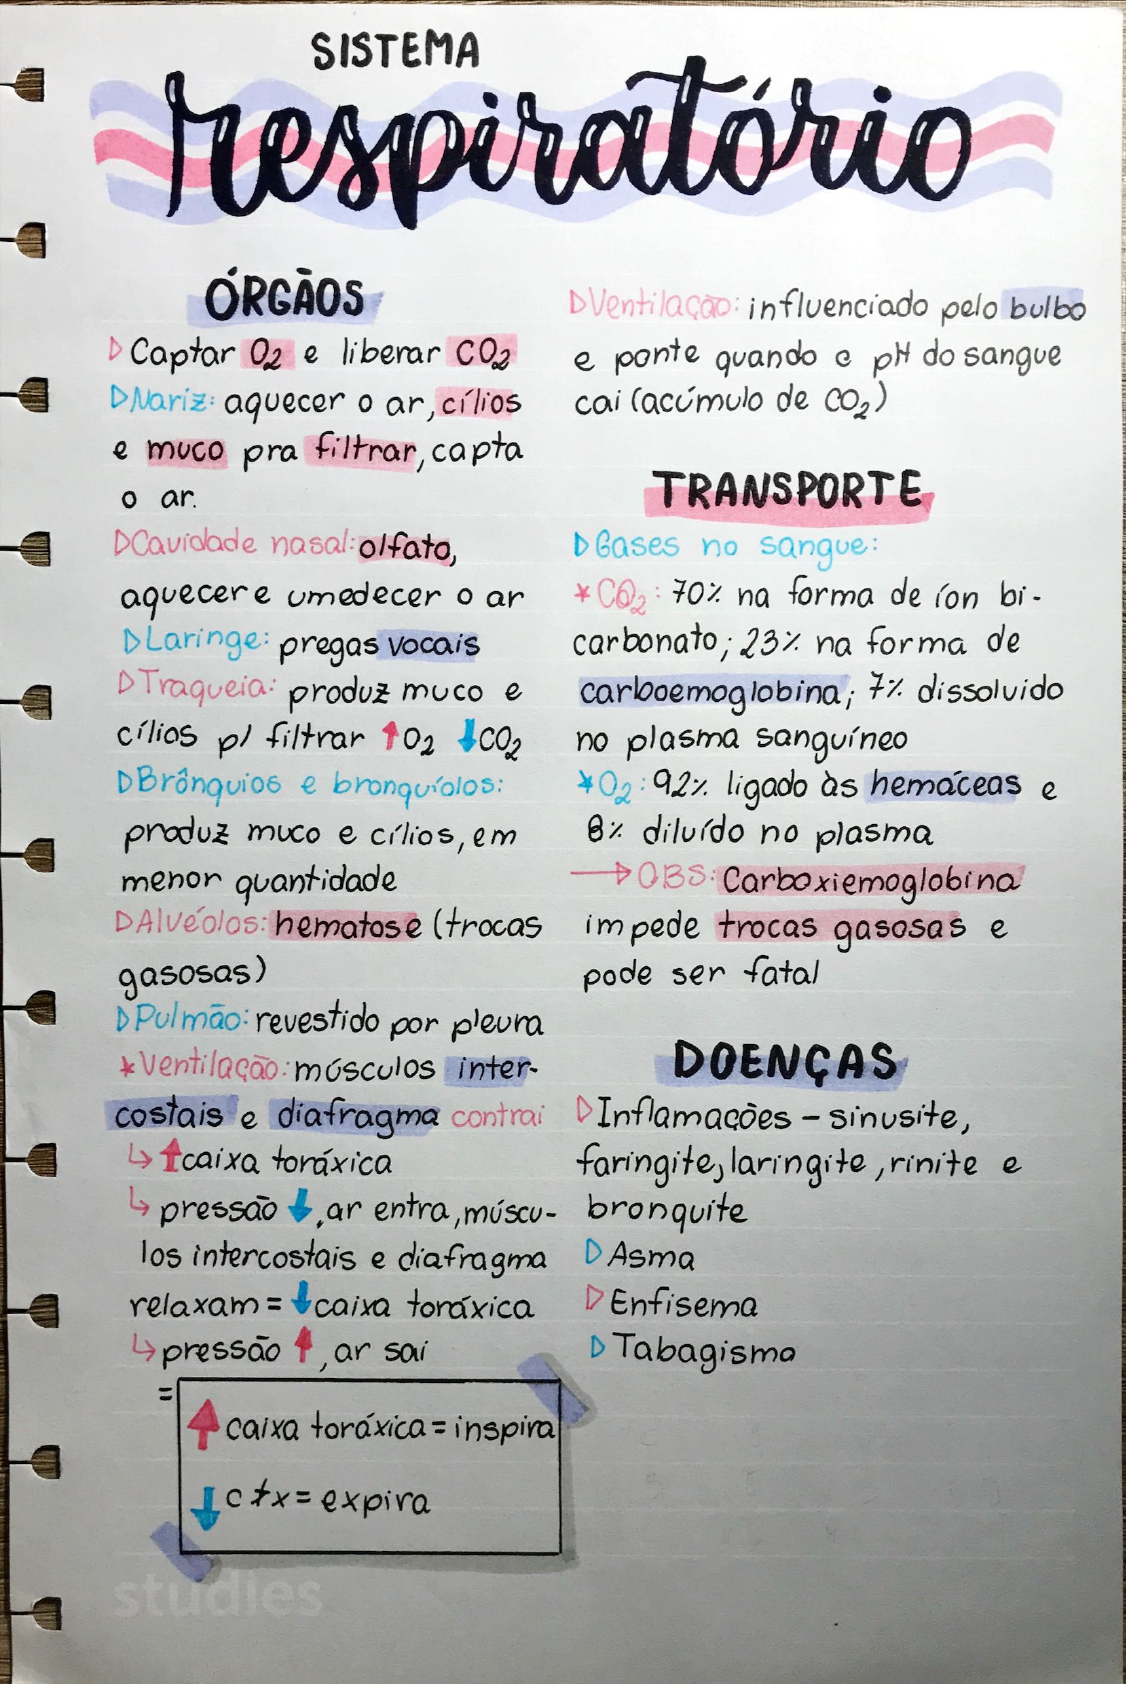 SISTEMA
respiratório
ÓRGÃOS
▷Captar O₂ e liberar CO₂
▷Nariz: aquecer o ar, cílios
e muco pra filtrar, capta
o ar.
▷Cavidade nasal: olfato,
aquecer e umedecer o ar
▷Laringe: pregas vocais
▷Traqueia: produz muco e
cílios p/ filtrar ↑O₂ ↓CO₂
▷Brônquios e bronquíolos:
produz muco e cílios, em
menor quantidade
▷Alvéolos: hematose (trocas
gasosas)
▷Pulmão: revestido por pleura
*Ventilação: músculos inter-
costais e diafragma contrai
↳ ↑caixa toráxica
↳ pressão ↓, ar entra, múscu-
los intercostais e diafragma
relaxam = ↓caixa toráxica
↳ pressão ↑, ar sai
=
↑ caixa toráxica = inspira
↓ c tx = expira
studies
▷Ventilação: influenciado pelo bulbo
e ponte quando o pH do sangue
cai (acúmulo de CO₂)
TRANSPORTE
▷Gases no sangue:
*CO₂: 70% na forma de íon bi-
carbonato; 23% na forma de
carboemoglobina; 7% dissolvido
no plasma sanguíneo
*O₂: 92% ligado às hemáceas e
8% diluído no plasma
→OBS: Carboxiemoglobina
impede trocas gasosas e
pode ser fatal
DOENÇAS
▷Inflamações – sinusite,
faringite, laringite, rinite e
bronquite
▷Asma
▷Enfisema
▷Tabagismo